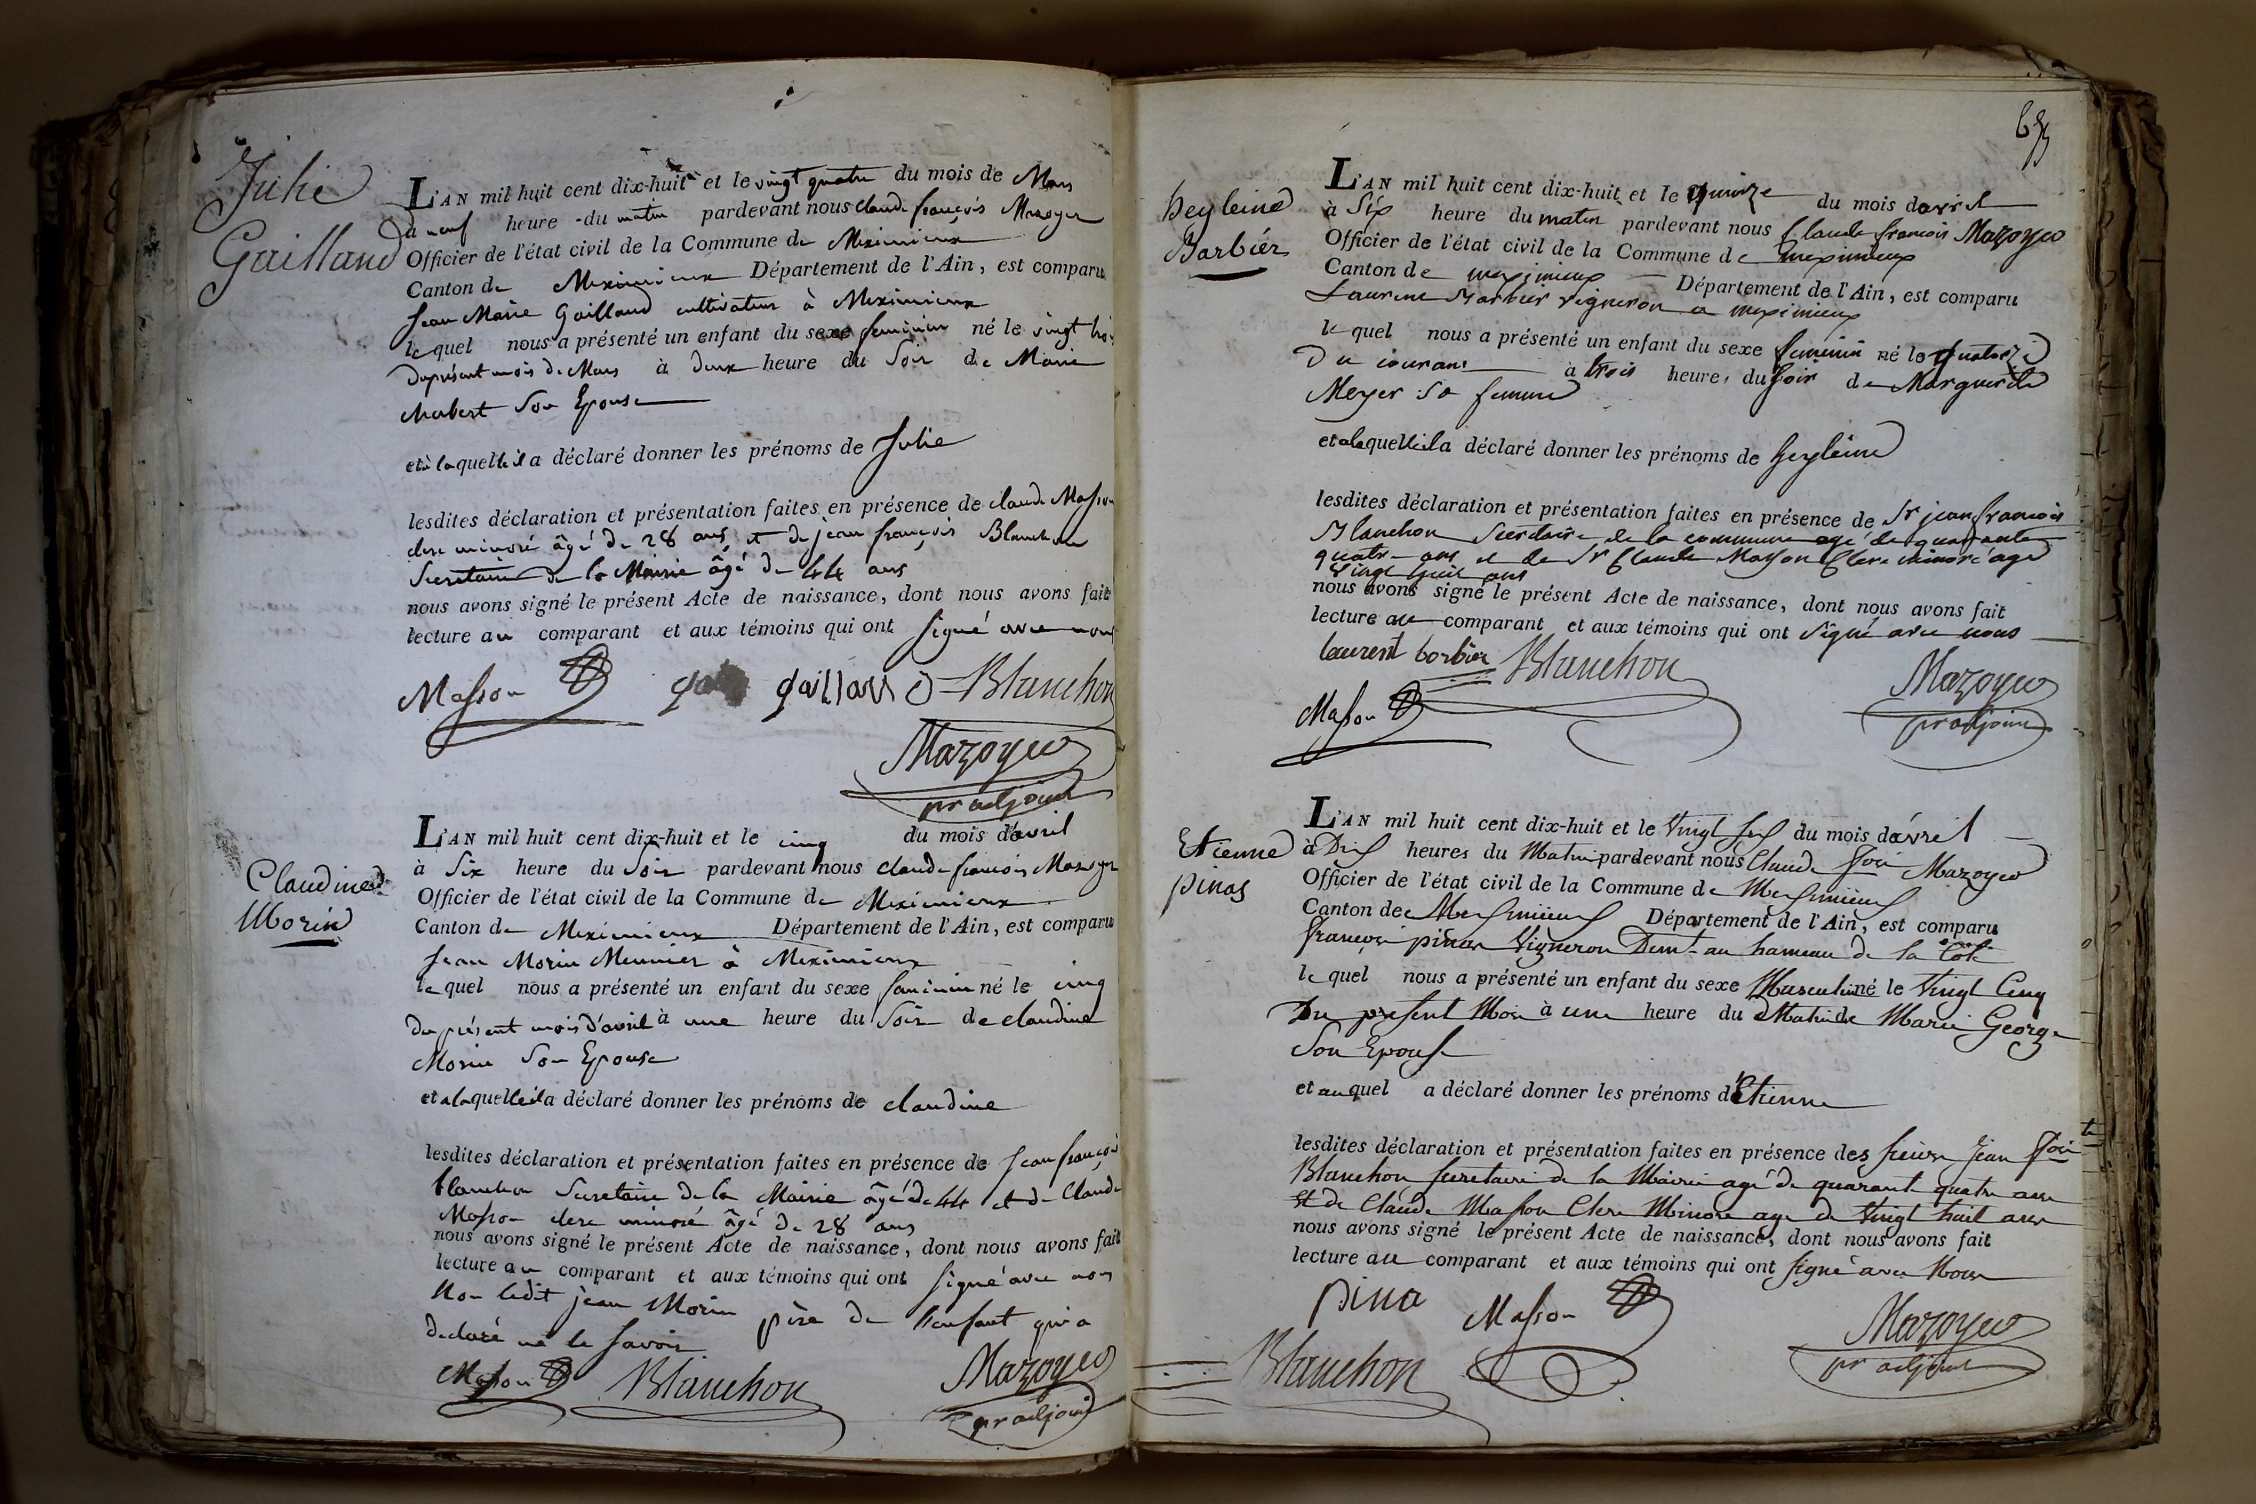 Julie
Gailland
L'AN mil huit cent dix-huit et le vingt quatre du mois de Mars
à neuf heure du matin pardevant nous claude françois Mazoyer
Officier de l'état civil de la Commune de Meximieux
Canton de Meximieux Département de l'Ain, est comparu
jean Marie Gailland cultivateur à Meximieux
lequel nous a présenté un enfant du sexe feminin né le vingt trois
du présent mois de Mars à deux heure du soir de Marie
son Epouse
et à laquelle il a déclaré donner les prénoms de Julie
lesdites déclaration et présentation faites en présence de claude Masson
clerc minoré âgé de 28 ans et de jean françois Blanchon
Secretaire de la Mairie âgé de 44 ans
nous avons signé le présent Acte de naissance, dont nous avons fait
lecture au comparant et aux témoins qui ont signé avec nous
Masson gailland Blanchon
Mazoyer
pr adjoint
Claudine
Morin
L'AN mil huit cent dix-huit et le cinq du mois d'avril
à Six heure du Soir pardevant nous claude françois Mazoyer
Officier de l'état civil de la Commune de Meximieux
Canton de Meximieux Département de l'Ain, est comparu
jean Morin Meunier à Meximieux
lequel nous a présenté un enfant du sexe feminin né le cinq
du présent mois d'avril à une heure du Soir de claudine
Morin Son Epouse
et a laquelle il a déclaré donner les prénoms de claudine
lesdites déclaration et présentation faites en présence de jean françois
blanchon Secretaire de la Mairie âgé de 44 et de Claude
Masson clerc minoré âgé de 28 ans
nous avons signé le présent Acte de naissance, dont nous avons fait
lecture au comparant et aux témoins qui ont signé avec nous
Non ledit jean Morin père de l'enfant qui a
declaré ne le savoir
Masson Blanchon Mazoyer
pr adjoint
Barbier
L'AN mil huit cent dix-huit et le quinze du mois davril
à Six heure du matin pardevant nous Claude francois Mazoyer
Officier de l'état civil de la Commune de meximieux
Canton de meximieux Département de l'Ain, est comparu
Laurent Barbier vigneron a meximieux
lequel nous a présenté un enfant du sexe feminin né le quatorze
Du courant à trois heures du soir de Marguerite
Meyer sa femme
et a laquelle il a déclaré donner les prénoms de
lesdites déclaration et présentation faites en présence de Sr jean francois
Blanchon Secretaire de la commune agé de quarante
quatre ans et de Sr Claude Masson Clerc minoré agé
vingt huit ans
nous avons signé le présent Acte de naissance, dont nous avons fait
lecture au comparant et aux témoins qui ont signé avec nous
laurent borbier Blanchon Mazoyer
Masson pr adjoint
Etienne
pinas
L'AN mil huit cent dix-huit et le Vingt six du mois d'avril
à Dix heures du Matin pardevant nous Claude fois Mazoyer
Officier de l'état civil de la Commune de Meximieux
Canton de Meximieux Département de l'Ain, est comparu
françois pinas Vigneron Demt au hameau de la Cote
lequel nous a présenté un enfant du sexe Masculin né le Vingt Cinq
Du present Mois à une heure du Matin de Marie George
Son Epouse
et auquel a déclaré donner les prénoms d'Etienne
lesdites déclaration et présentation faites en présence des sieurs Jean fois
Blanchon secretaire de la Mairie agé de quarante quatre ans
Et de Claude Masson Clerc Minoré agé de Vingt huit ans
nous avons signé le présent Acte de naissance, dont nous avons fait
lecture au comparant et aux témoins qui ont signé avec Nous
pina Masson Mazoyer
Blanchon pr adjoint